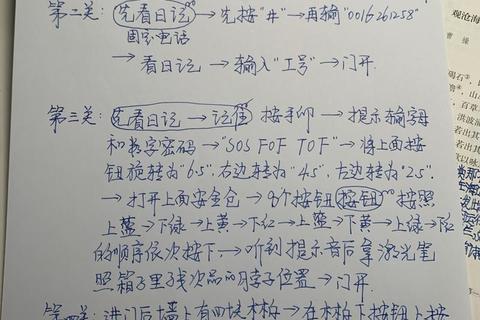 第二关: 先看日记→先按"#"→再输"0016261258"
固定电话
→看日记→输入"工号"→门开.
第三关: 先看日记→记住 按手印→提示输字母
和数字密码→"SOS FOF TOF"→将上面按
钮旋转为"6.5",右边转为"4.5",左边转为"2.5".
→打开上面安全仓→8个按钮 按钮 按照
上蓝→下绿→上黄→下红→上蓝→下黄→上绿→下红
的顺序依次按下→听到提示音后拿激光笔
照箱子里残次品的脖子位置→门开.
第四关: 进门后墙上有四块木柏→在木柏下按钮上按
观沧海
曹操